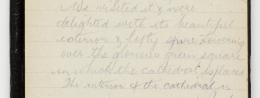 We visited it & were
delighted with its beautiful
exterior & lofty spire towering
over the glorious green square
in which the cathedral is placed
The interior of the cathedral is